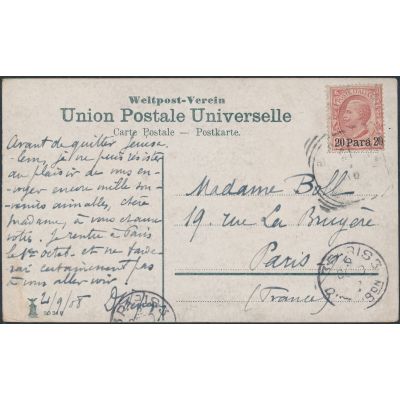 Weltpost-Verein
Union Postale Universelle
Carte Postale – Postkarte.
20 Para 20
Avant de quitter Jerusa-
lem, je ne puis résister
au plaisir de vous en-
voyer encore mille sou-
venirs aimables, chère
madame, à vous et aux
vôtres. Je rentre à Paris
le 1er octob. et ne
certainement pas
à vous aller voir
21/9/08
Madame Boll
19 rue La Bruyère
Paris
(France)
PARIS
PARIS